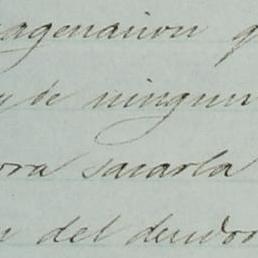 agenacion q
y de ningun
rra sacarla
n del deudor